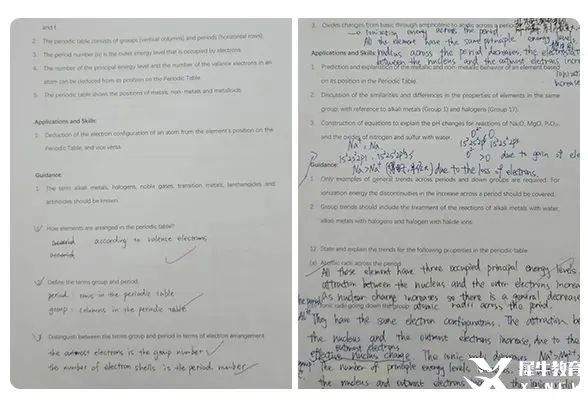 and f
2. The periodic table consists of groups (vertical columns) and periods (horizontal rows).
3. The period number (n) is the outer energy level that is occupied by electrons.
4. The number of the principal energy level and the number of the valence electrons in an
atom can be deduced from its position on the Periodic Table.
5. The periodic table shows the positions of metals, non-metals and metalloids.
Applications and Skills:
1. Deduction of the electron configuration of an atom from the element's position on the
Periodic Table, and vice versa.
Guidance:
1. The term alkali metals, halogens, noble gases, transition metals, lanthanoides and
actinoides should be known.
How elements are arranged in the periodic table?
according to valence electrons
Define the terms group and period.
period: rows in the periodic table
group: columns in the periodic table
Distinguish between the terms group and period in terms of electron arrangement
the outmost electrons is the group number
the number of electron shells is the period number
3. Oxides changes from basic through amphoteric to acidic across a period
Ionization energy across the period
All the element have the same principle energy level,
Applications and Skills: radius across the period decreases, the electrostatic
between the nucleus and the outmost electrons incr
1. Prediction and explanation of the metallic and non-metallic behavior of an element based
on its position in the Periodic Table.
increase
2. Discussion of the similarities and differences in the properties of elements in the same
group, with reference to alkali metals (Group 1) and halogens (Group 17).
3. Construction of equations to explain the pH changes for reactions of Na₂O, MgO, P₄O₁₀,
and the oxides of nitrogen and sulfur with water.
Na⁺, Na
due to gain of ele
Guidance:
Na>Na⁺ due to the loss of electrons.
1. Only examples of general trends across periods and down groups are required. For
ionization energy the discontinuities in the increase across a period should be covered.
2. Group trends should include the treatment of the reactions of alkali metals with water,
alkali metals with halogens and halogen with halide ions.
12. State and explain the trends for the following properties in the periodic table
(a) Atomic radii across the period
All these element have three occupied principal energy levels
attraction between the nucleus and the outer electrons increa
As nuclear charge increases so there is a general decrease
atomic radii across the period.
Ionic radii going down the group
They have the same electron configurations. The attraction be
the nucleus and the outmost electrons increase, due to the
outmost electrons
Effective nucleus charge. The ionic radii decreases.
The number of principle energy levels
the nucleus and outmost electrons
犀牛教育